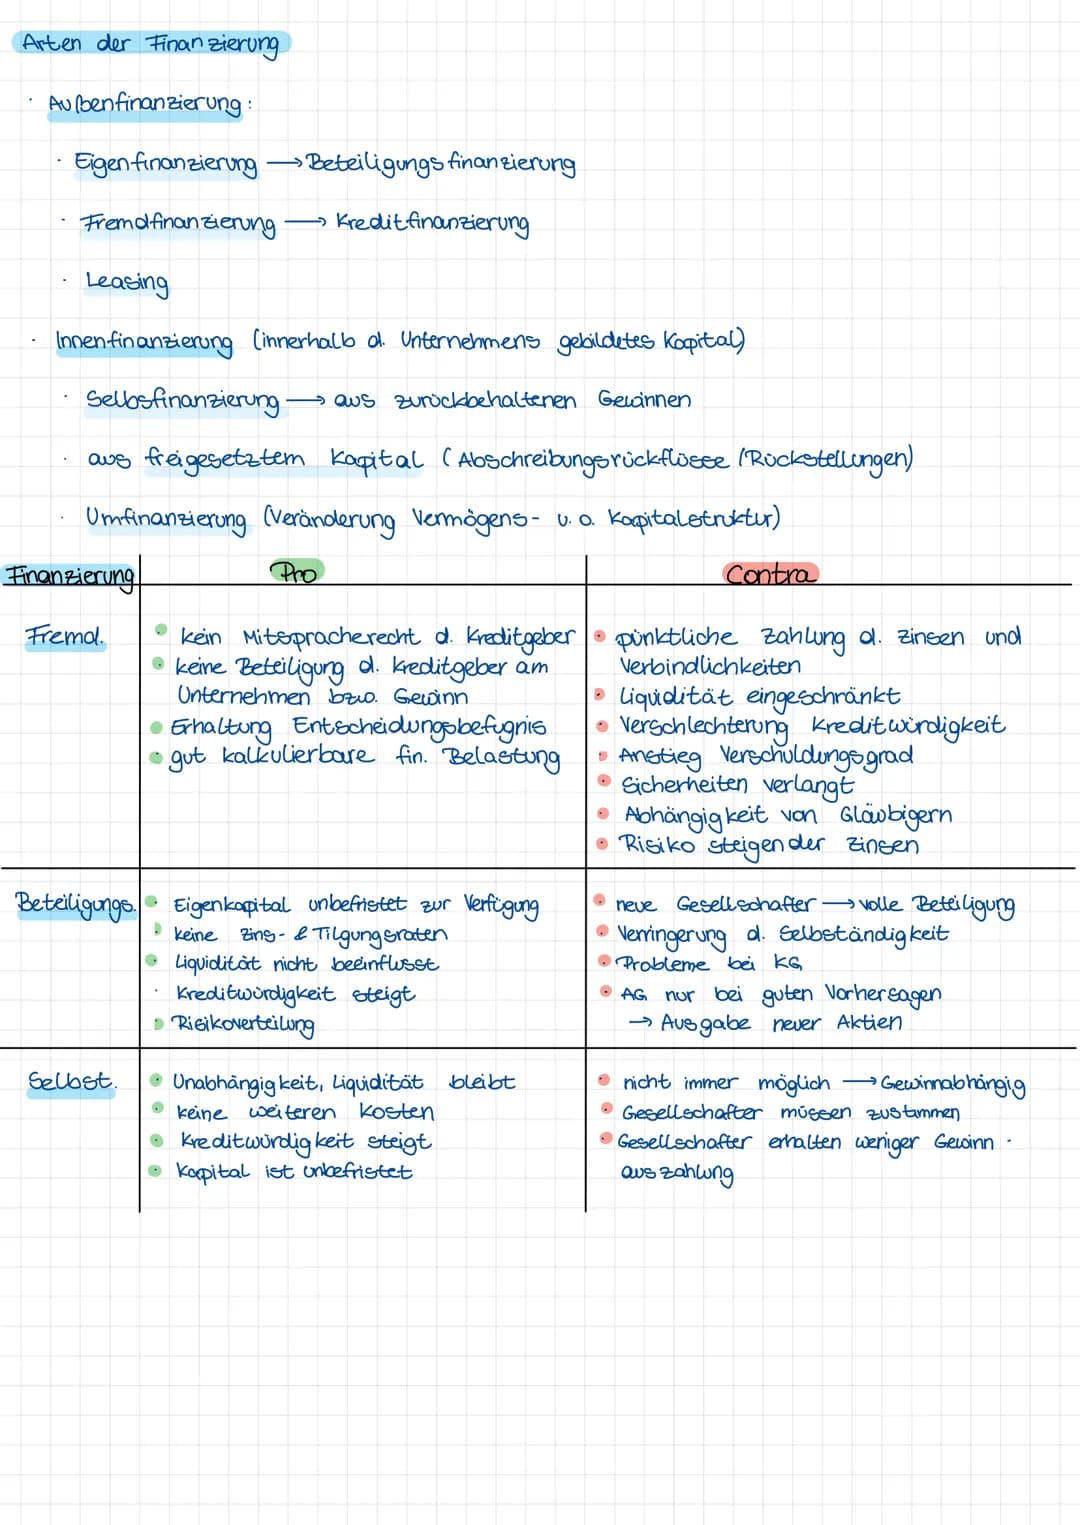 Arten der Finanzierung
· Außenfinanzierung:
· Eigenfinanzierung → Beteiligungsfinanzierung
· Fremdfinanzierung → Kreditfinanzierung
· Leasing
· Innenfinanzierung (innerhalb d. Unternehmens gebildetes Kapital)
· Selbsfinanzierung → aus zurückbehaltenen Gewinnen
· aus freigesetztem Kapital (Abschreibungsrückflüsse (Rückstellungen)
· Umfinanzierung (Veränderung Vermögens- u. o. Kapitalstruktur)
Finanzierung Pro Contra
Fremd.
• kein Mitspracherecht d. Kreditgeber
• keine Beteiligung d. Kreditgeber am
Unternehmen bzw. Gewinn
• Erhaltung Entscheidungsbefugnis
• gut kalkulierbare fin. Belastung
• pünktliche Zahlung d. Zinsen und
Verbindlichkeiten
• Liquidität eingeschränkt
• Verschlechterung Kreditwürdigkeit
• Anstieg Verschuldungsgrad
• Sicherheiten verlangt
• Abhängigkeit von Gläubigern
• Risiko steigender Zinsen
Beteiligungs.
• Eigenkapital unbefristet zur Verfügung
• keine Zins- & Tilgungsraten
• Liquidität nicht beeinflusst
· Kreditwürdigkeit steigt
• Risikoverteilung
• neue Gesellschafter → volle Beteiligung
• Verringerung d. Selbständigkeit
• Probleme bei KG
• AG nur bei guten Vorhersagen
→ Ausgabe neuer Aktien
Selbst.
• Unabhängigkeit, Liquidität bleibt
• keine weiteren Kosten
• Kreditwürdigkeit steigt
• Kapital ist unbefristet
• nicht immer möglich → Gewinnabhängig
• Gesellschafter müssen zustimmen
• Gesellschafter erhalten weniger Gewinn-
auszahlung